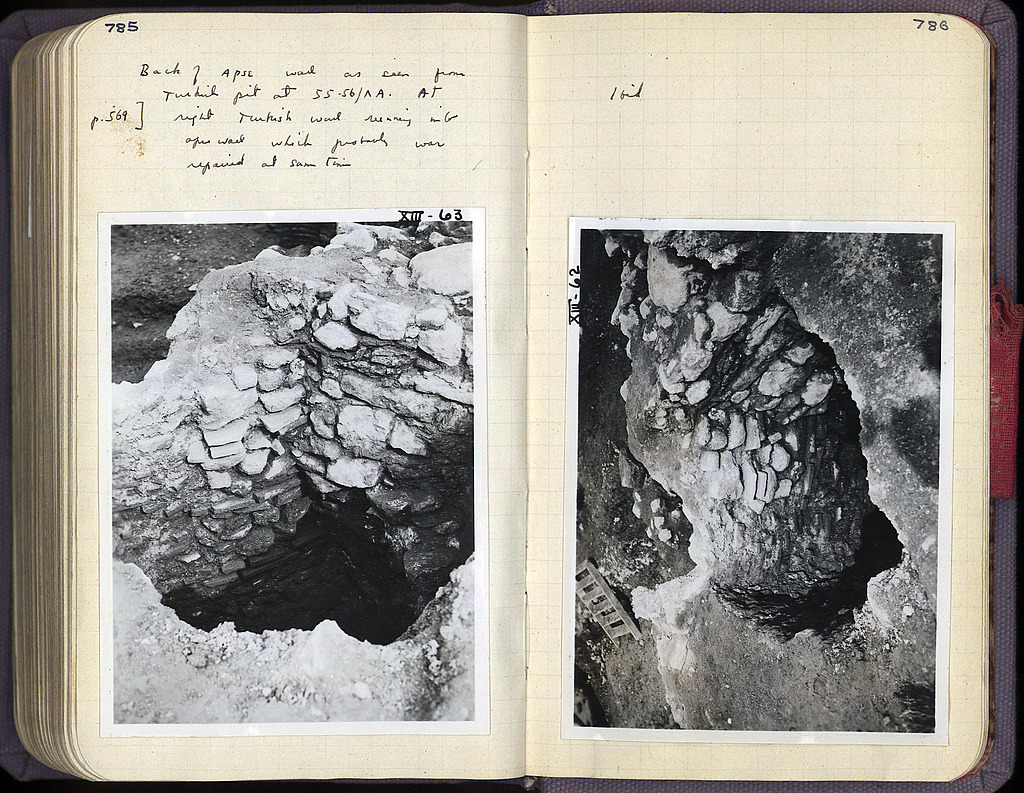 785
Back of Apse wall as seen from
Turkish pit at 55-56/ΛΑ. At
p. 569] right Turkish wall running into
apse wall which probably was
repaired at same time
XIII-63
786
Ibid
XIII-62